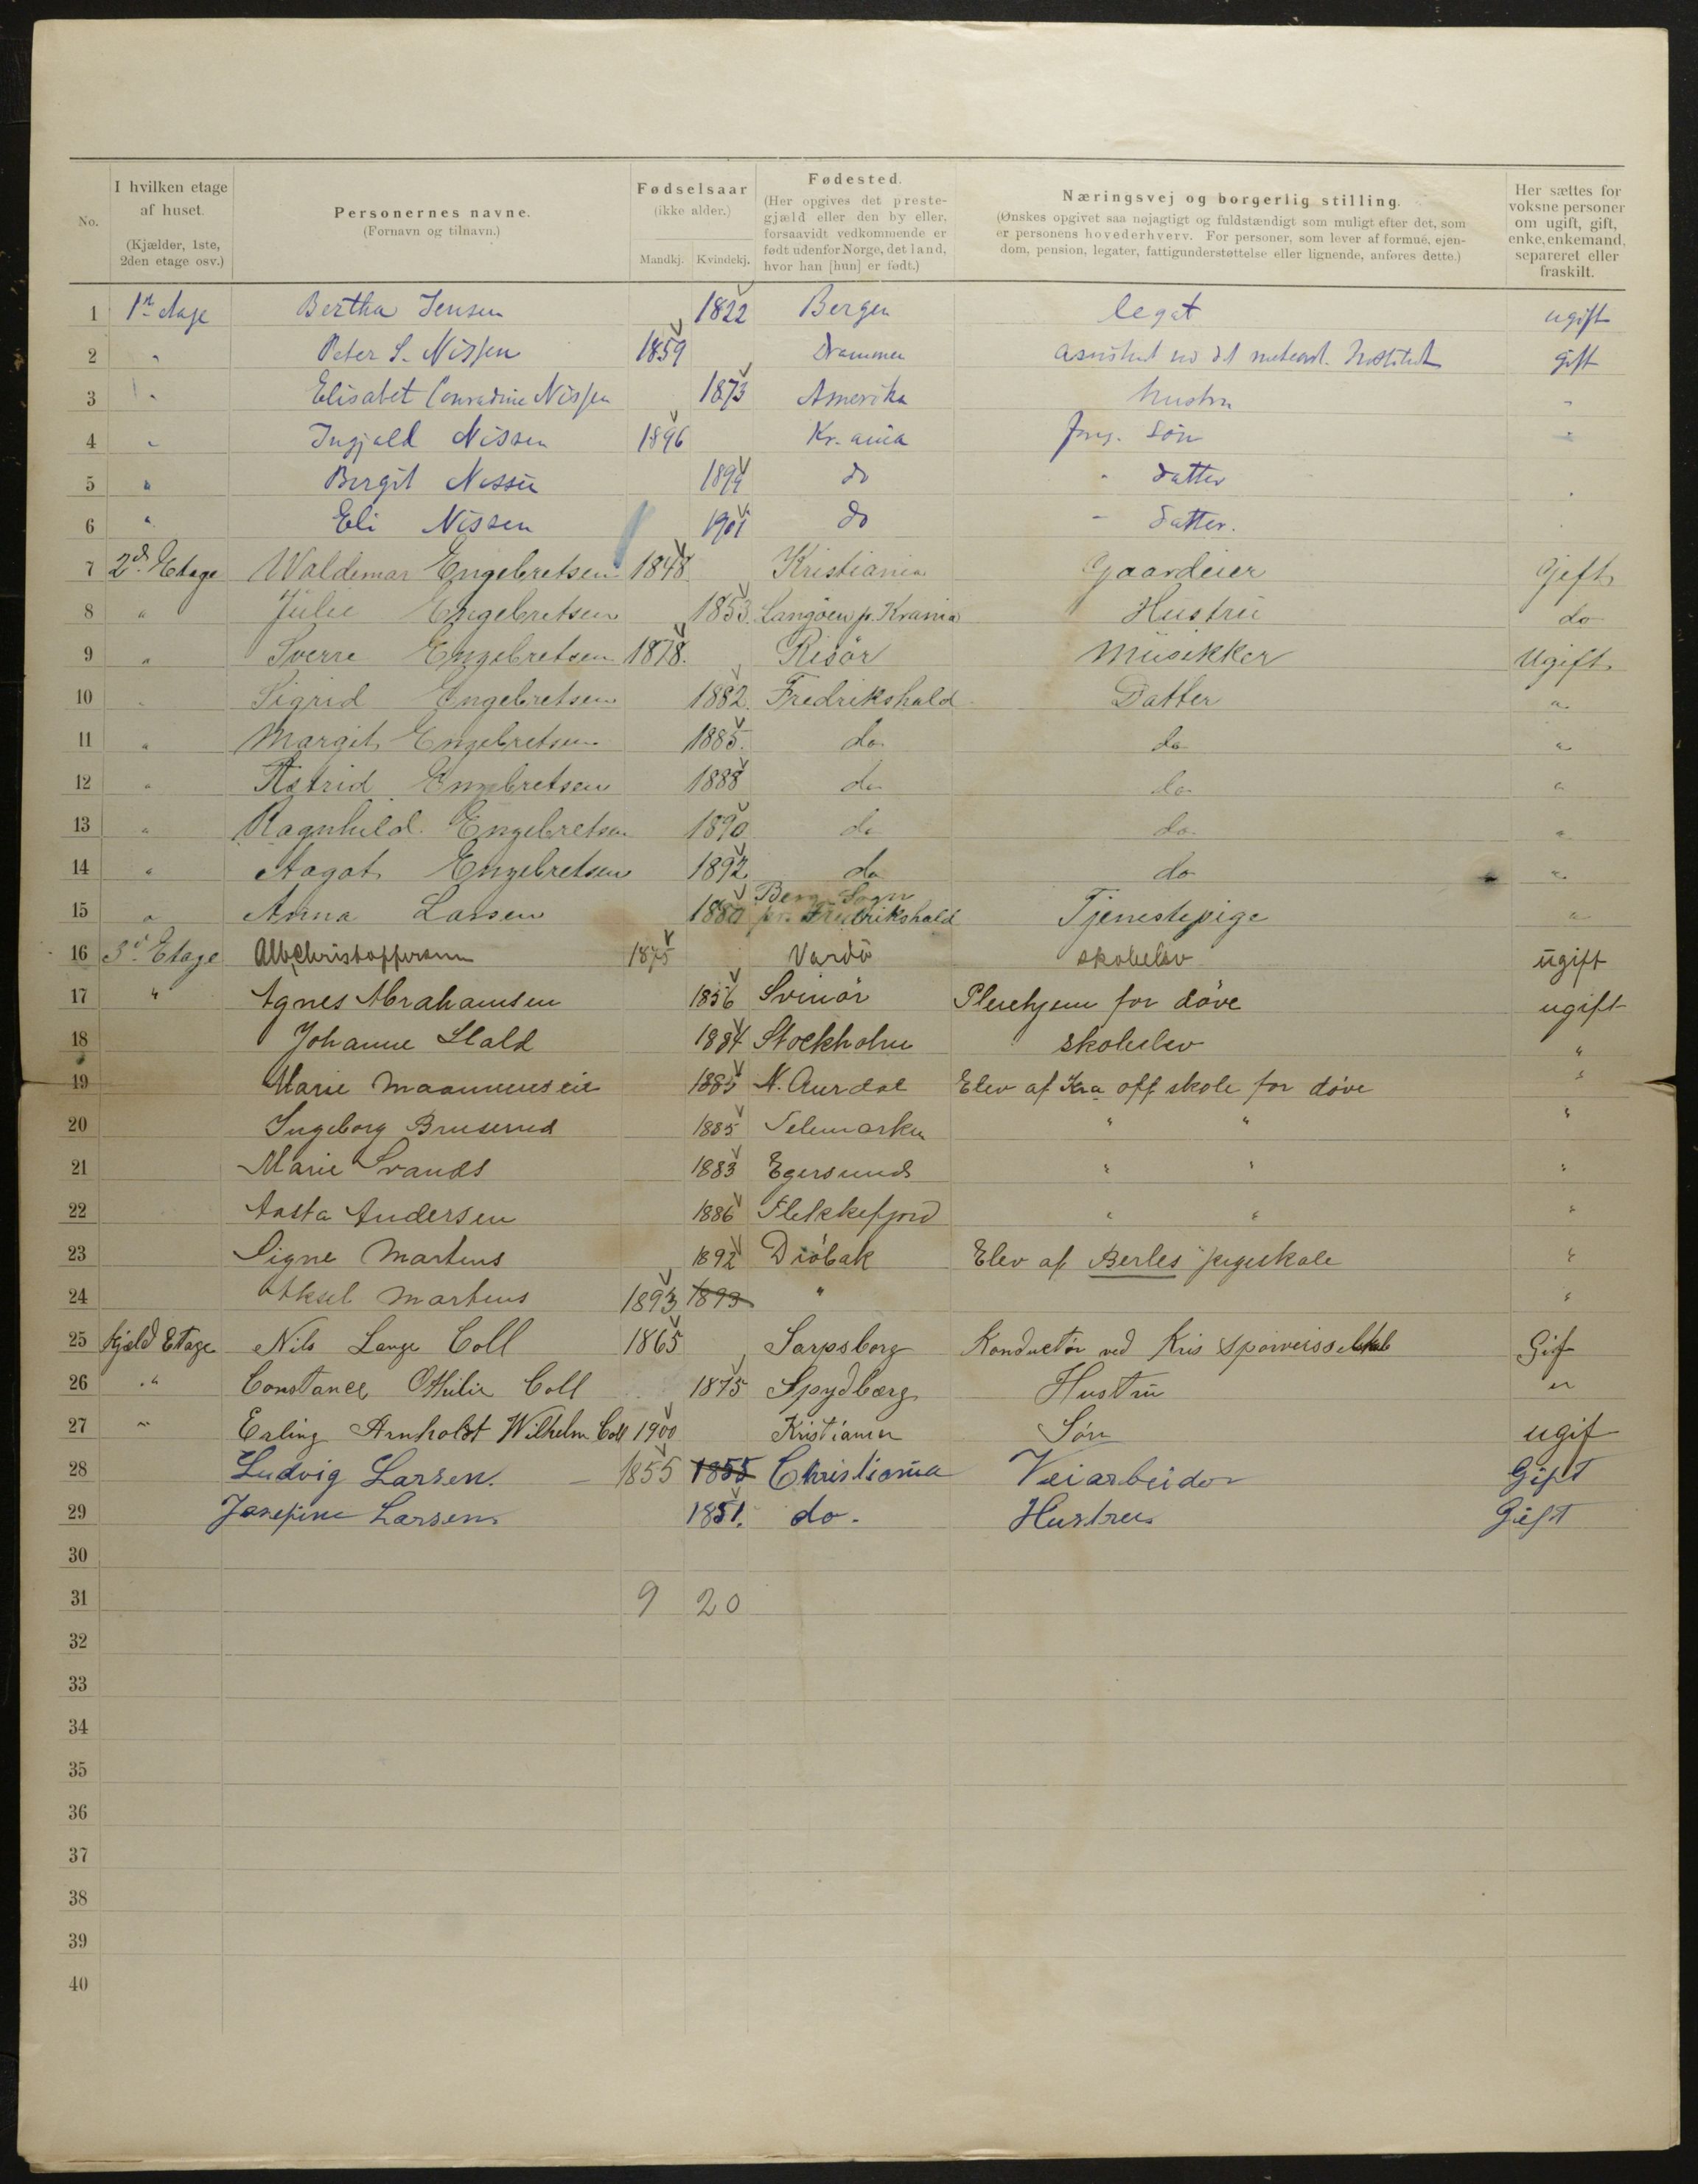 No.
I hvilken etage af huset. (Kjælder, 1ste, 2den etage osv.)
Personernes navne. (Fornavn og tilnavn.)
Fødselsaar (ikke alder.) Mandkj. Kvindekj.
Fødested. (Her opgives det prestegjæld eller den by eller, forsaavidt vedkommende er født udenfor Norge, det land, hvor han [hun] er født.)
Næringsvej og borgerlig stilling. (Ønskes opgivet saa nøjagtigt og fuldstændigt som muligt efter det, som er personens hovederhverv. For personer, som lever af formue, ejendom, pension, legater, fattigunderstøttelse eller lignende, anføres dette.)
Her sættes for voksne personer om ugift, gift, enke, enkemand, separeret eller fraskilt.
1 Bertha Jensen 1822 Bergen legat ugift
2 " Peter S. Nissen 1859 Drammen gift
3 " Elisabet Conradine Nissen 1873 Amerika hustru "
4 " Ingjald Nissen 1896 Kr.ania søn "
5 " Bergit Nissen do " datter
6 " Eli Nissen 1901 do " datter.
7 2d Etage Waldemar Engebretsen 1848 Kristiania Gaardeier Gift
8 " Julie Engebretsen 1853. Langöen pr. Krania Hustru do
9 " Sverre Engebretsen 1878. Risör Musikker Ugift
10 " Sigrid Engebretsen 1882. Fredrikshald Datter "
11 " Margit Engebretsen 1885. do do "
12 " Astrid Engebretsen 1888 do do "
13 " Ragnhild Engebretsen 1890 do do "
14 " Aagot Engebretsen 1892 do do "
15 " Anna Larsen 1880 Berg Sogn pr. Fredrikshald Tjenestepige "
16 3d Etage Alb Christoffersen 1875 Vardö skoleelev ugift
17 " Agnes Abrahamsen 1856 Svinör Pleiehjem for döve ugift
18 Johanne Stald 1884 Stockholm skoleelev "
19 Marie 1885 N. Aurdal Elev af Kra off skole for döve "
20 Ingeborg Bruserud 1885 Telemarken " " "
21 Marie Svands 1883 Egersund " " "
22 Aasta Andersen 1886 Flekkefjord " " "
23 Signe Martens 1892 Dröbak Elev af Berles pigeskole "
24 Aksel Martens 1893 1893 " "
25 Kjeld Etage Nils Lange Coll 1865 Sarpsborg Konductör ved Kris Sporveisselskab Gif
26 " Constance Othilie Coll 1875 Spydberg Hustru "
27 " Erling Arnholdt Wilhelm Coll 1900 Kristiania Sön ugif
28 Ludvig Larsen. 1855 1855 Christiania Veiarbeider Gift
29 Josefine Larsen 1851. do. Hustru Gift
30
31 9 20
32
33
34
35
36
37
38
39
40